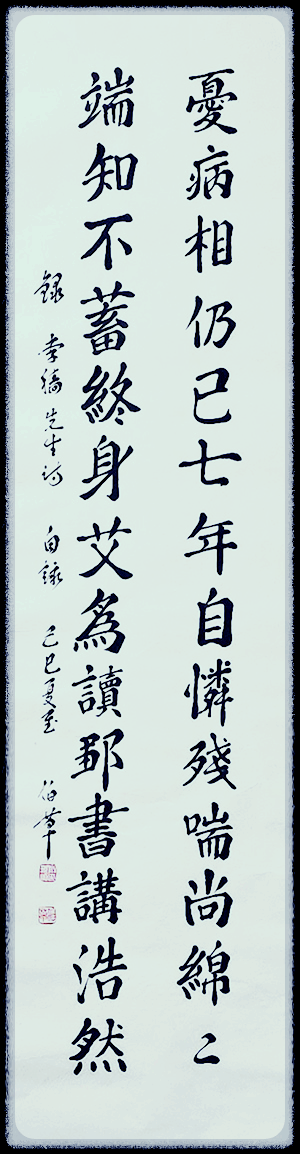 憂病相仍已七年自憐殘喘尚綿〻
端知不蓄終身艾為讀鄒書講浩然
錄 李穡先生詩 自詠 己巳夏至